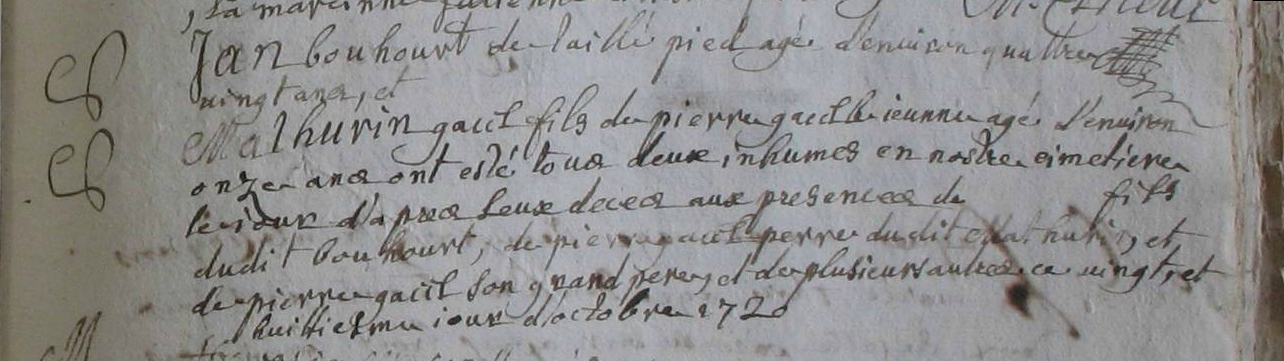 S Jan bouhourt de laillé pied agé denuiron quattre
uingt ans, et
S Mathurin gacil fils de pierre gacil le ieunne agé denuiron
onze ans ont esté tous deux inhumes en nostre cimetiere
le iour d'apres leux deces aux presences de fils
dudit bouhourt, de pierre gacil perre dudit Mathurin, et
de pierre gacil son grand pere, et de plusieurs autres ce uingt, et
huittiesme iour d'octobre 1720
M